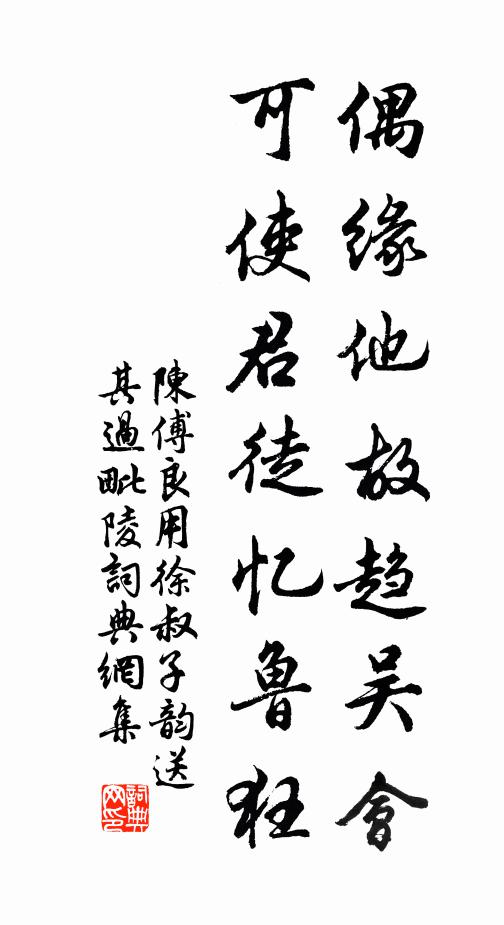 偶缘他故趋吴會
可使君徒忆魯狂
陳傅良用徐叔子韵送
其過毗陵詞典網集
詞典网印